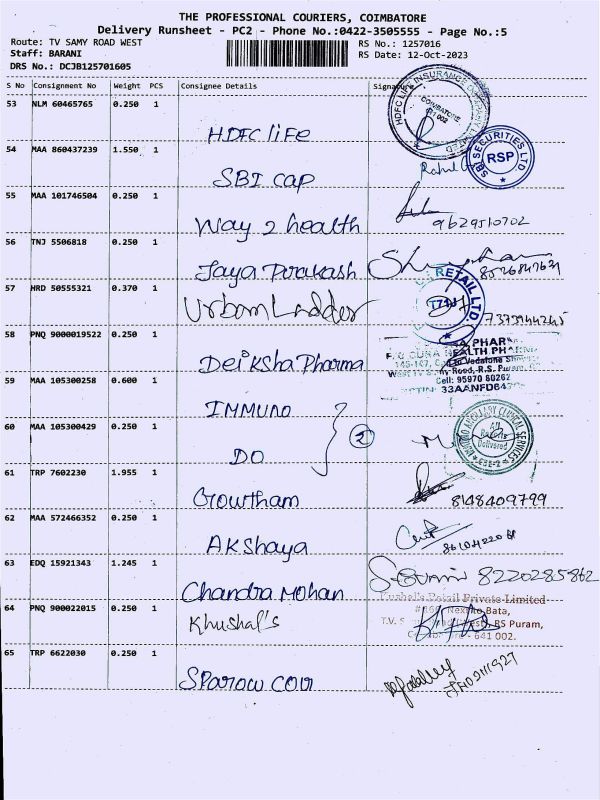 THE PROFESSIONAL COURIERS, COIMBATORE
Delivery Runsheet - PC2 - Phone No.:0422-3505555 - Page No.:5
Route: TV SAMY ROAD WEST
RS No.: 1257016
Staff: BARANI
RS Date: 12-Oct-2023
DRS No.: DCJB125701605
S No Consignment No Weight PCS Consignee Details Signature
53 NLM 60465765 0.250 1
HDFC life
HDFC LIFE INSURANCE COMPANY LIMITED
COIMBATORE
54 MAA 860437239 1.550 1
SBI cap
SBI SECURITIES LTD.
RSP
55 MAA 101746504 0.250 1
Way 2 health
9629510702
56 TNJ 5506818 0.250 1
Jaya Prakash
57 HRD 50555321 0.370 1
Urban Ladder
RETAIL LTD.
58 PNQ 9000019522 0.250 1
Deiksha Pharma
Cell: 95970 60262
59 MAA 105300258 0.600 1
IMMUNO
60 MAA 105300429 0.250 1
DO
2
61 TRP 7602230 1.955 1
Growtham
8148409799
62 MAA 572466352 0.250 1
Akshaya
63 EDQ 15921343 1.245 1
Chandra Mohan
8220285862
64 PNQ 900022015 0.250 1
Khushal's
Retail Private Limited
Next to Bata,
RS Puram,
641 002.
65 TRP 6622030 0.250 1
Sparow cour